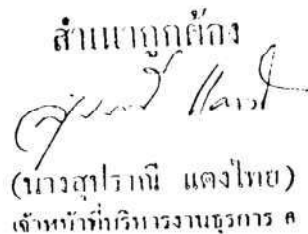 สำเนาถูกต้อง
(นางสุปราณี แตงไทย)
เจ้าหน้าที่บริหารงานธุรการ ๓